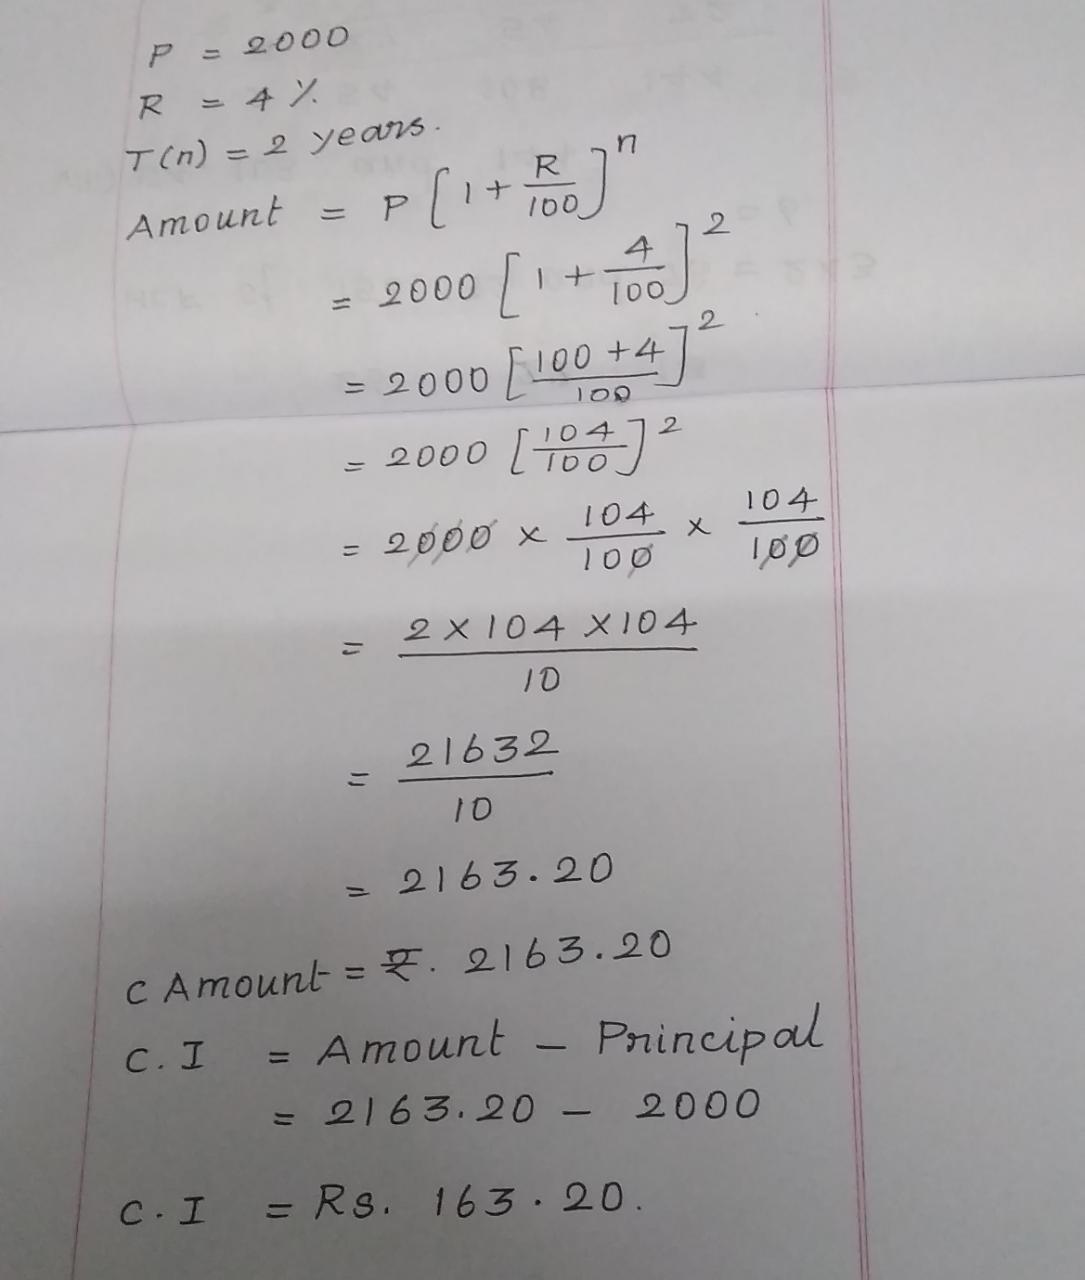 P = 2000
R = 4 %.
T(n) = 2 years.
Amount = P [1 + R/100]^n
= 2000 [1 + 4/100]^2
= 2000 [100 + 4/100]^2
= 2000 [104/100]^2
= 2000 × 104/100 × 104/100
= 2 × 104 × 104/10
= 21632/10
= 2163.20
C Amount = ₹. 2163.20
C.I = Amount – Principal
= 2163.20 – 2000
C.I = Rs. 163.20.